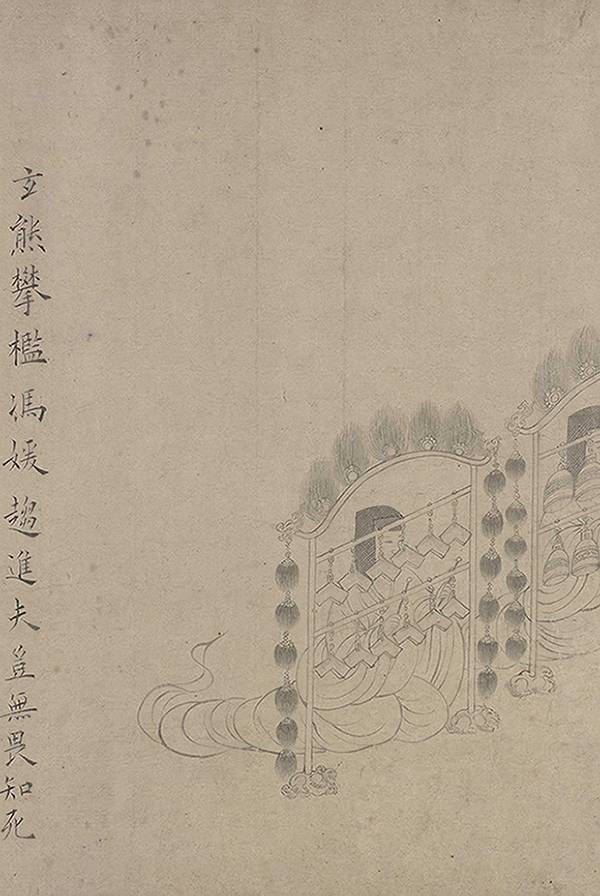 玄熊攀檻馮媛趍進夫豈無畏知死